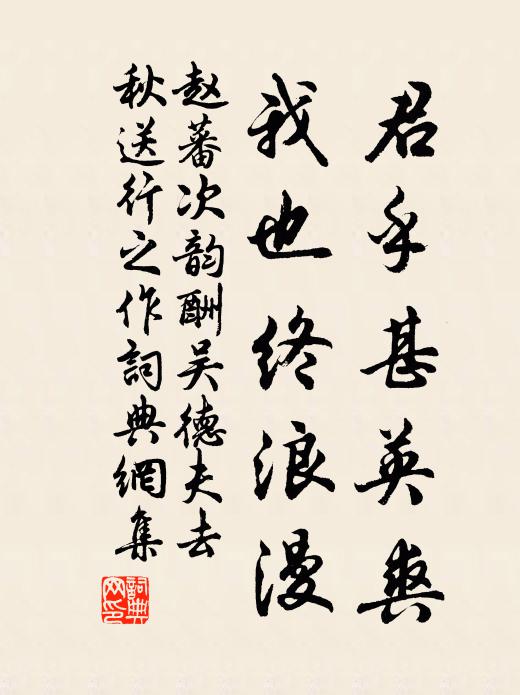 君乎甚英爽
我也终浪漫
赵蕃次韵酬吴德夫去
秋送行之作詞典網集
詞典
网印